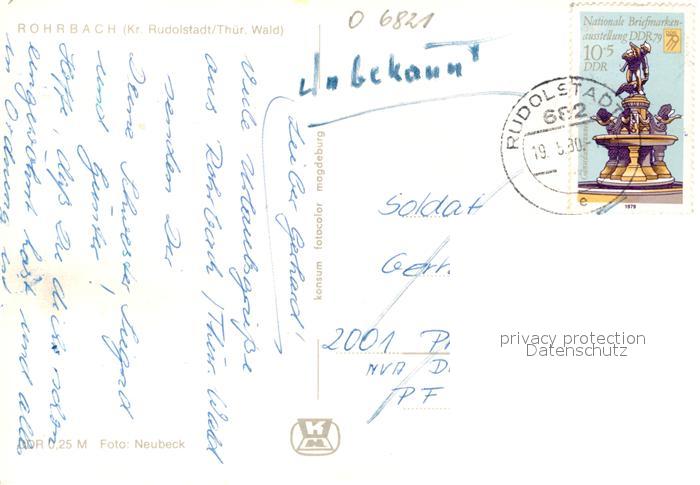 O 6821
ROHRBACH (Kr. Rudolstadt/Thür. Wald)
Unbekannt
Nationale Briefmarken-
ausstellung DDR 79
10+5
DDR
1979
RUDOLSTADT
682
19.5.80.-
e
Lieber Gerhard!
Viele Urlaubsgrüße
aus Rohrbach/Thür. Wald
senden Dir
Deine Schwester, Sigrid
und Günter!
Hoffe, daß Du dich schon
eingewöhnt hast und alles
in Ordnung
konsum fotocolor magdeburg
Soldat
Gerh
2001
NVA
PF
privacy protection
Datenschutz
DDR 0,25 M Foto: Neubeck